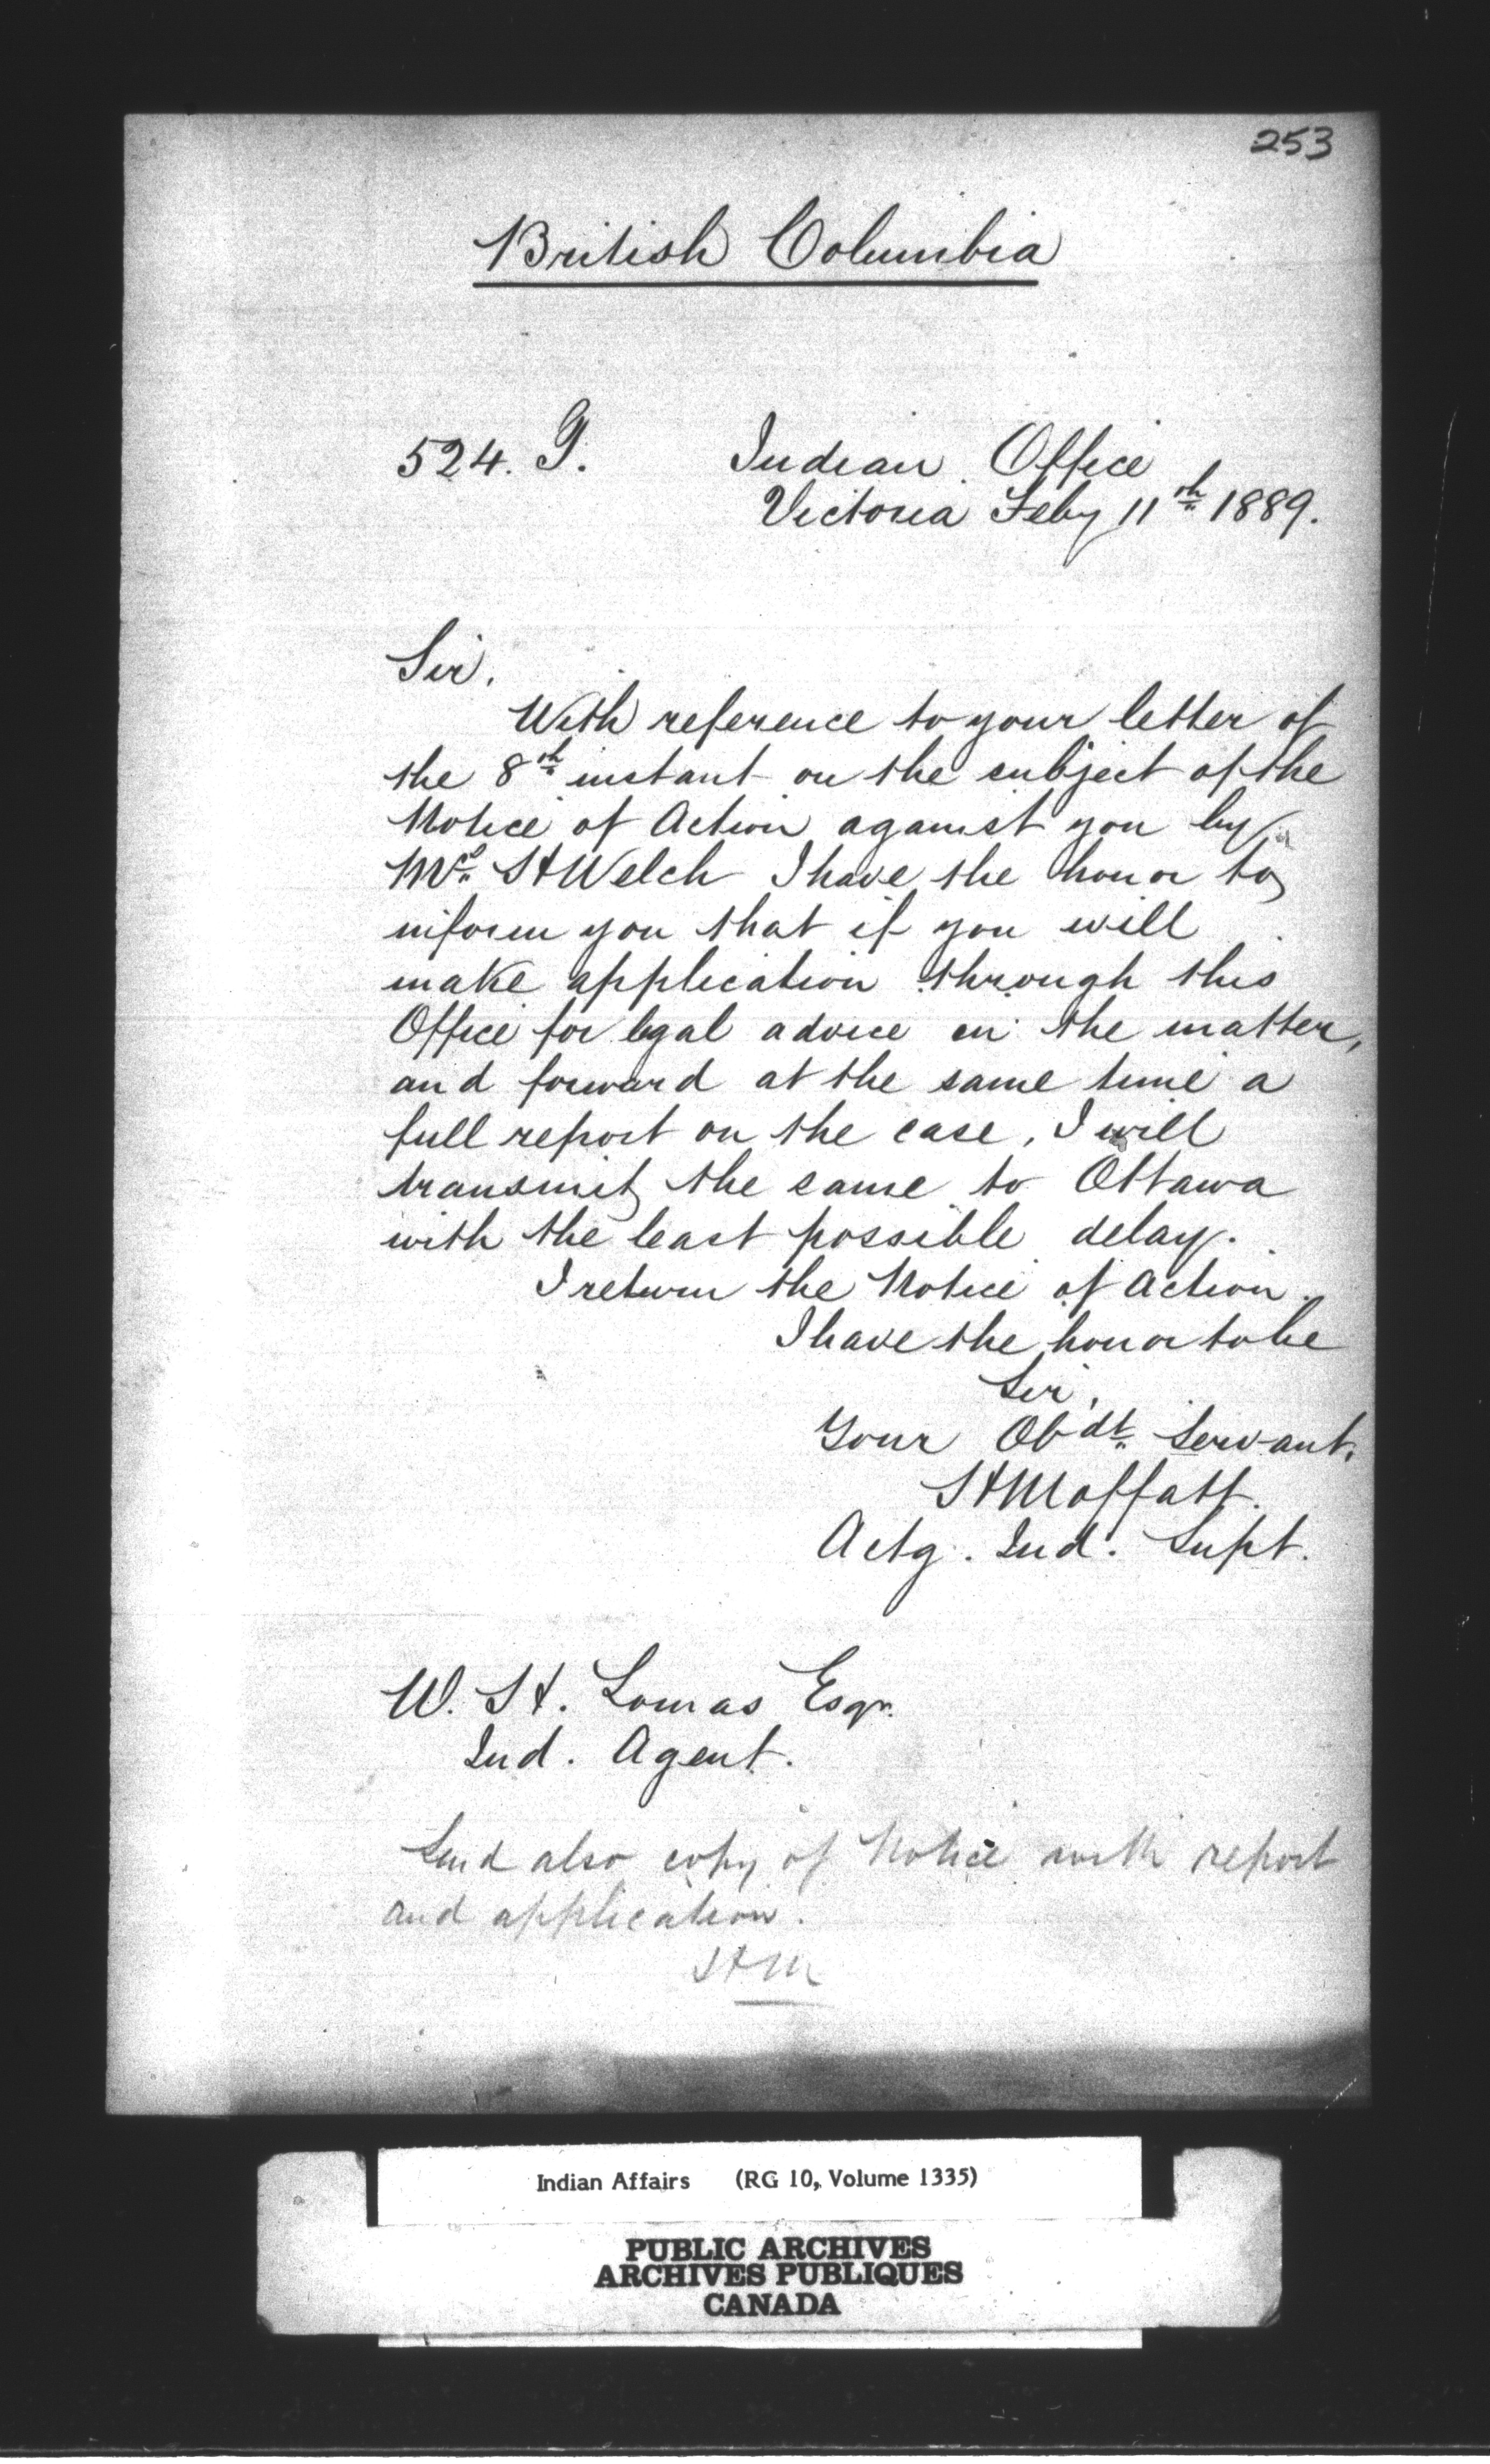 253
British Columbia
524. G. Indian Office
Victoria Feby 11th 1889.
Sir,
With reference to your letter of
the 8th instant on the subject of the
Notice of Action against you by
Mrs. H Welch I have the honor to
inform you that if you will
make application through this
Office for legal advice in the matter,
and forward at the same time a
full report on the case, I will
transmit the same to Ottawa
with the least possible delay.
I return the Notice of Action.
I have the honor to be
Sir,
Your Obdt Servant.
H Moffatt.
Actg. Ind. Supt.
W. H. Lomas Esqr.
Ind. Agent.
Send also copy of Notice with report
and application.
HM
Indian Affairs (RG 10, Volume 1335)
PUBLIC ARCHIVES
ARCHIVES PUBLIQUES
CANADA